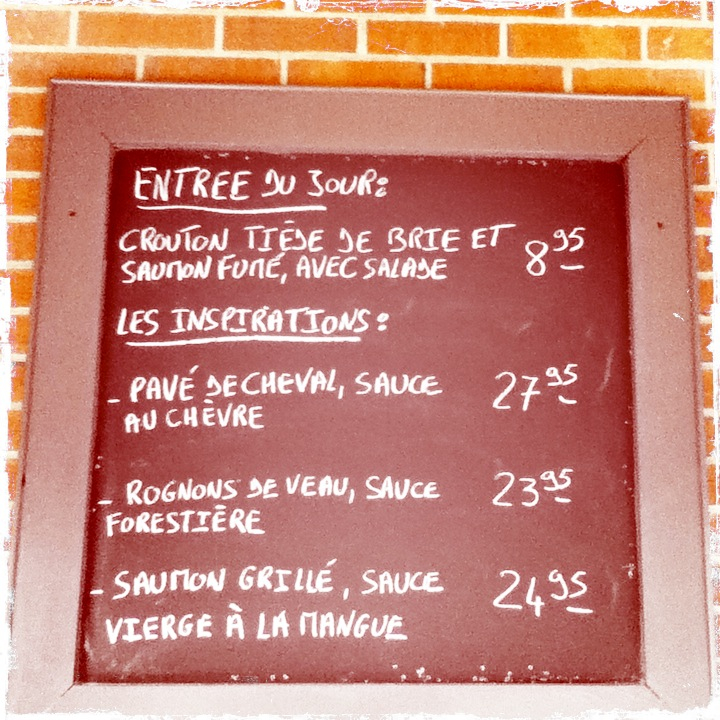 ENTREE DU JOUR:
CROUTON TIÈDE DE BRIE ET 8 95
SAUMON FUMÉ, AVEC SALADE
LES INSPIRATIONS:
- PAVÉ DE CHEVAL, SAUCE 27 95
AU CHÈVRE
- ROGNONS DE VEAU, SAUCE 23 95
FORESTIÈRE
- SAUMON GRILLÉ, SAUCE 24 95
VIERGE À LA MANGUE